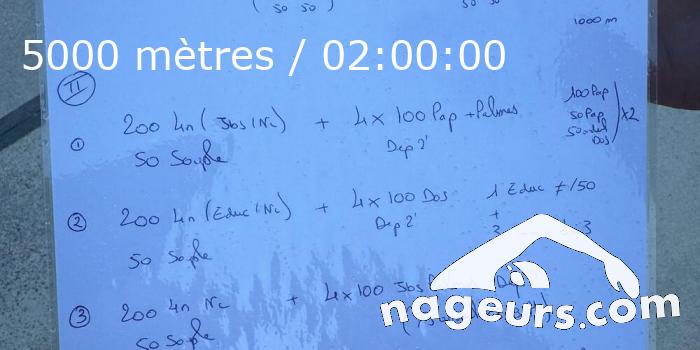 ( 50 50 )
50 50
1000 m
5000 mètres / 02:00:00
II
① 200 4n ( Jbs / Nc ) + 4 x 100 Pap + Palmes
50 Souple Dep 2'
100 Pap
50 Pap
50
Dos
x2
② 200 4n ( Educ / Nc ) + 4 x 100 Dos 1 Educ ≠ /50
50 Souple Dep 2' +
3 3
③ 200 4n Nc + 4 x 100 Jbs
50 Souple
nageurs.com